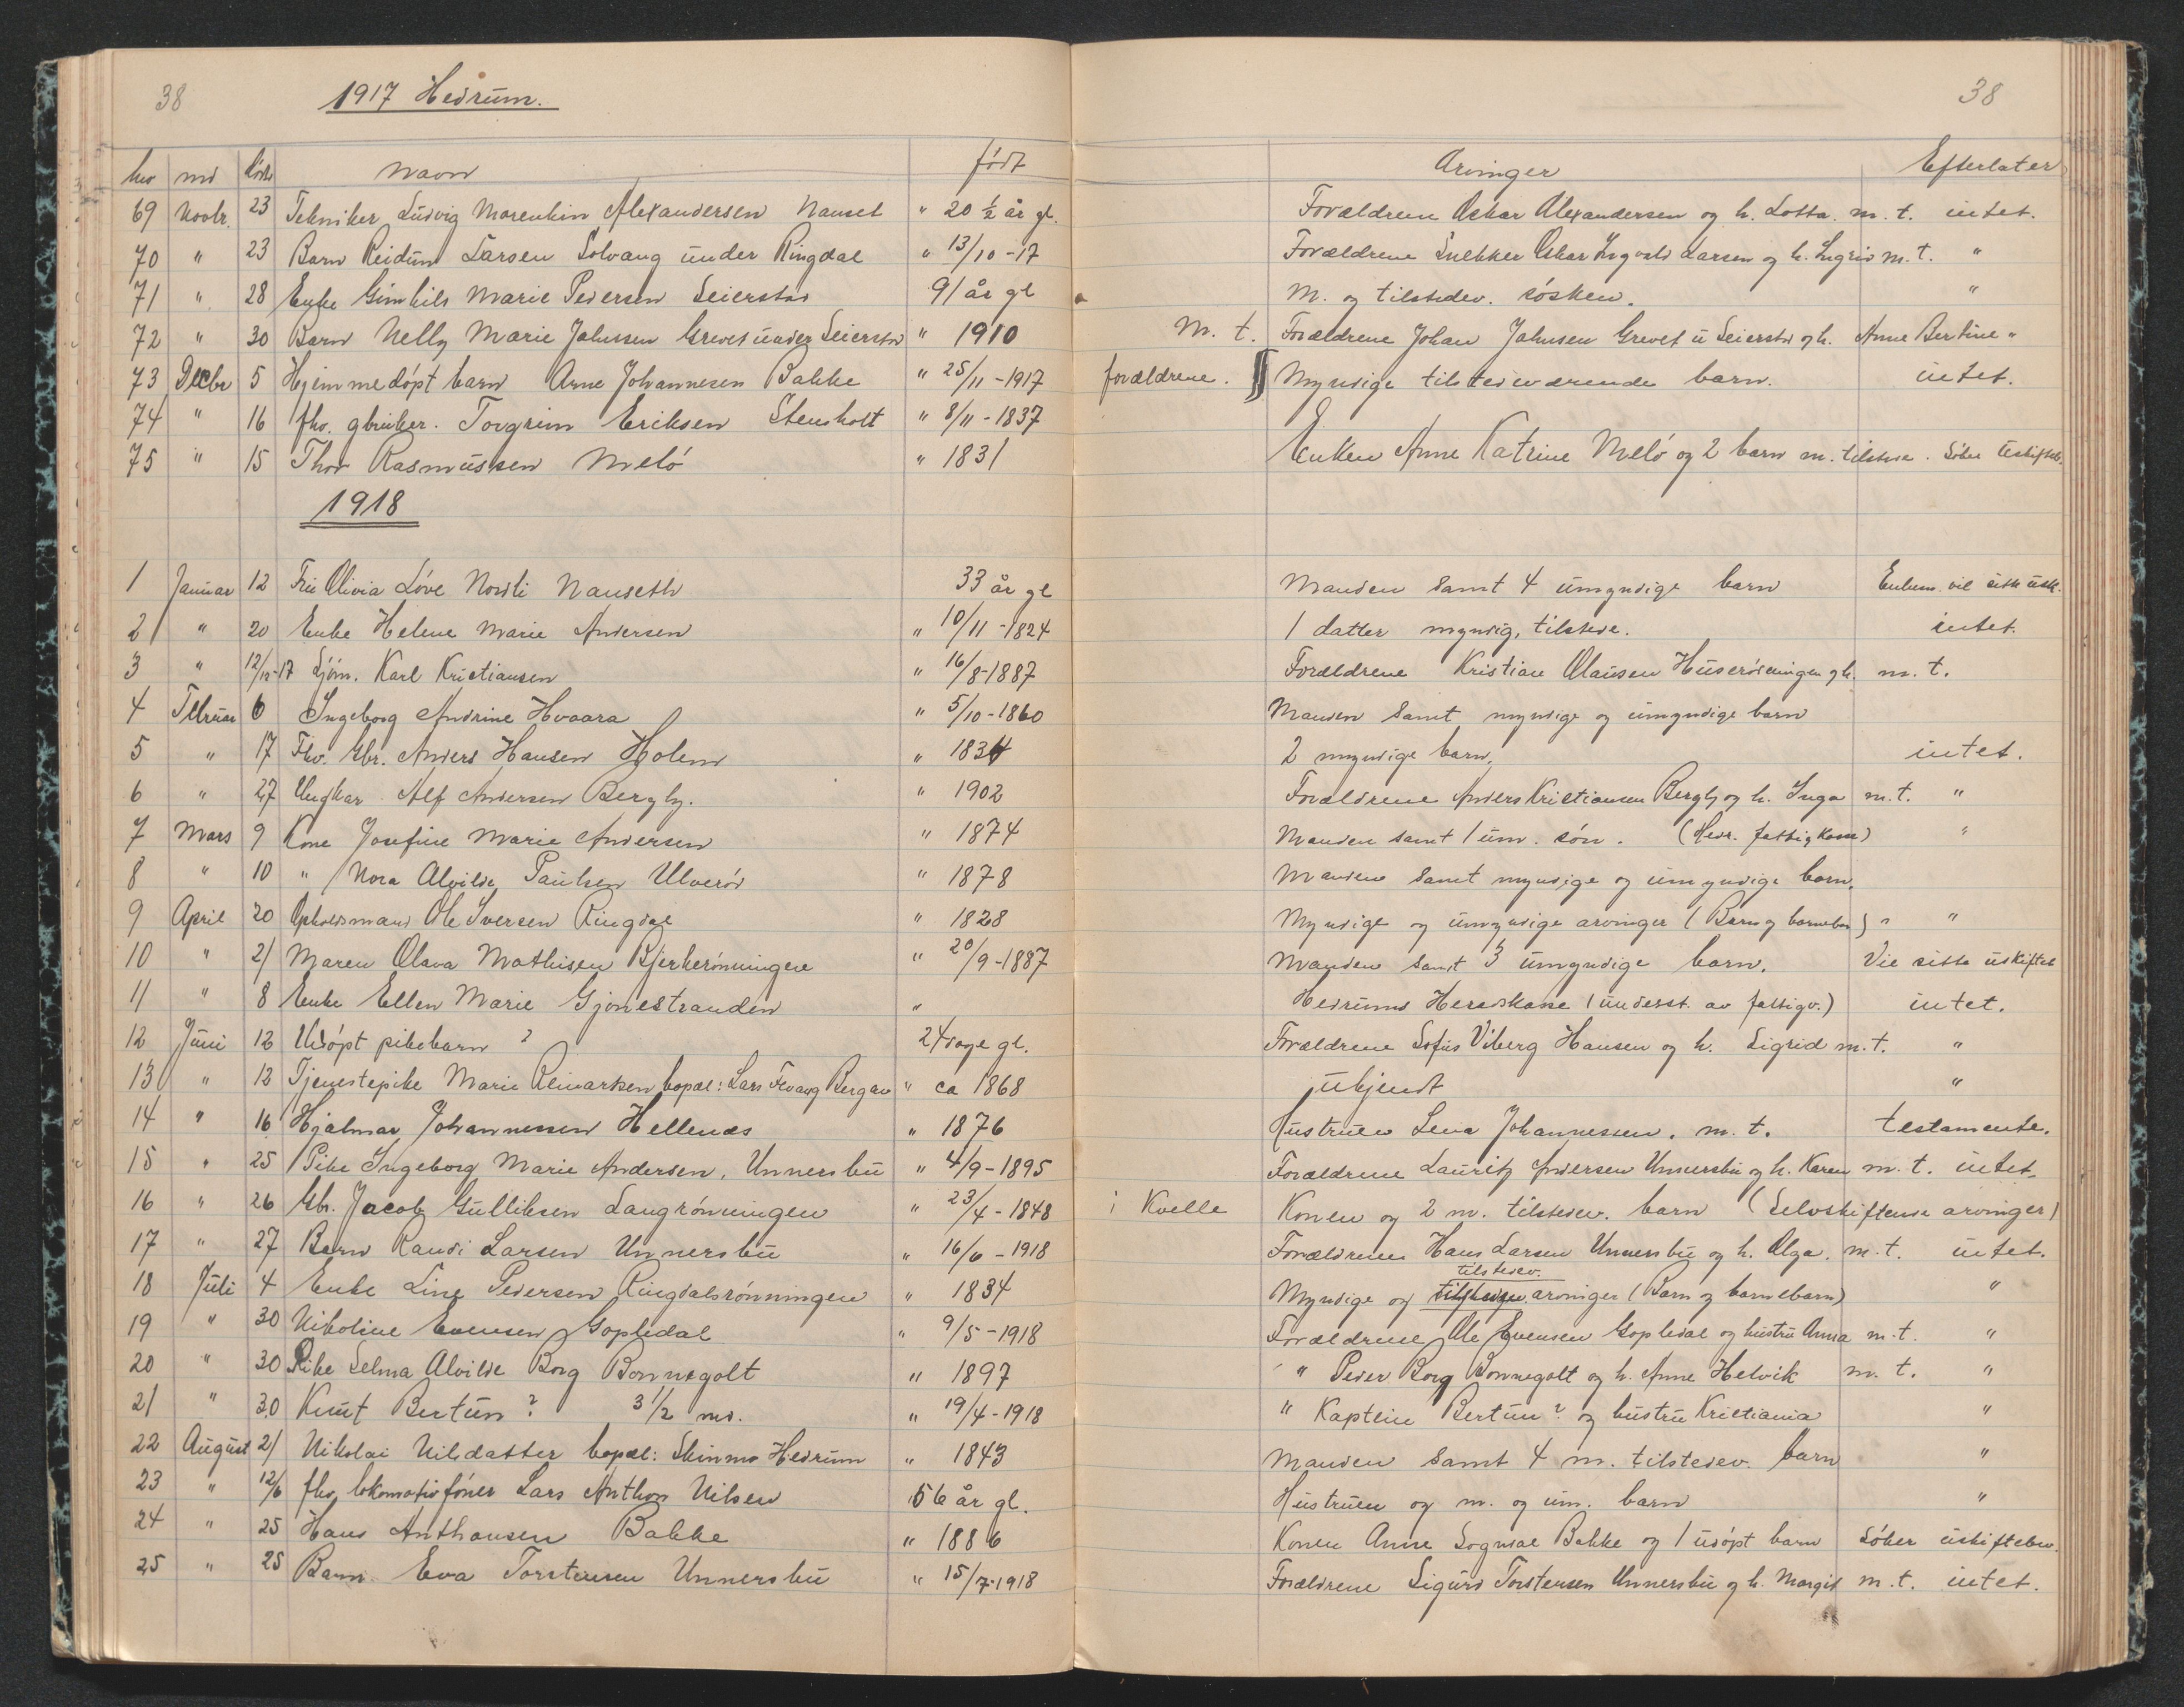 38 1917 Hedrum. 38
no md født navn født Arvinger Efterlater
69 Novbr. 23 Tekniker Ludvig Marenkin Alexandersen Nauset " 20 ½ år gl. Forældrene Oskar Alexandersen og h. Lotta. m. t. intet.
70 " 23 Barn Reidun Larsen Solvang under Ringdal " 13/10 -17 Forældrene Snekker Oskar Ingvald Larsen og h. Ingrid m. t. "
71 " 28 Enke Gunhild Marie Pedersen Seierstad 91 år gl M. og tilstedev. søsken. "
72 " 30 Barn Nelly Marie Johnsen Grevet under Seierstad " 1910 m. t. Forældrene Johan Johnsen Grevet u Seierstd og h. Anne Bertine "
73 Decbr 5 Hjemmedøpt barn Arne Johannesen Bakke " 25/11 -1917 forældrene. Myndige tilstedeværende barn. intet.
74 " 16 fhv. gbruker. Torgrim Eriksen Stensholt " 8/11 - 1837
75 " 15 Thor Rasmussen Melø " 1831 Enken Anne Katrine Melø og 2 barn m. tilstede. Søker uskifteb.
1918
1 Januar 12 Fru Olivia Løve Nordli Nauseth 33 år gl Manden samt 4 umyndige barn Enkem. vil sitte usk.
2 " 20 Enke Helene Marie Andersen " 10/11 -1824 1 datter myndig, tilstede. intet.
3 " 12/12-17 Sjøm. Karl Kristiansen " 16/8-1887 Forældrene Kristian Olausen Huserødeningen og h. m. t.
4 Februar 6 Ingeborg Andrine Hvaara " 5/10 -1860 Manden samt myndige og umyndige barn
5 " 17 Fhv. Gbr. Anders Hansen Holem " 1834 2 myndige barn. intet.
6 " 27 Ungkar Alf Andersen Bergly. " 1902 Forældrene Anders Kristiansen Bergly og h. Inga m. t. "
7 Mars 9 Kone Josefine Marie Andersen " 1874 Manden samt 1 um. søn. (Hedr. fattigkasse) "
8 " 10 " Nora Alvilde Paulsen Ulverød " 1878 Manden samt myndige og umyndige barn.
9 April 20 Opholdsmand Ole Iversen Ringdal " 1828 Myndige og umyndige arvinger (Barn og barnebarn) " "
10 " 21 Maren Olava Mathisen Bjerkerønningen " 20/9 -1887 Manden samt 3 umyndige barn. Vil sitte uskiftet
11 " 8 Enke Ellen Marie Gjønestranden " Hedrums Heredskasse (underst. av fattigv.) intet.
12 Juni 12 Udøpt pikebarn ? 24 dage gl. Forældrene Sofus Viberg Hansen og h. Sigrid m. t. "
13 " 12 Tjenestepike Marie Reinartsen bopæl: Lars Bergan " ca 1868 ukjendt "
14 " 16 Hjalmar Johannessen Hellenes " 1876 Hustruen Lena Johannessen. m. t. testamente.
15 " 25 Pike Ingeborg Marie Andersen, Unnersbu " 4/9 - 1895 Forældrene Lauritz Andersen Unnersbu og h. Karen m. t. intet.
16 " 26 Gbr. Jacob Gulliksen Langrønningen " 23/4 - 1848 i Kvelle Konen og 2 m. tilstedev. barn (Selvskiftende arvinger)
17 " 27 Barn Randi Larsen Unnersbu " 16/6 - 1918 Forældrene Hans Larsen Unnersbu og h. Olga. m. t. intet.
18 Juli 4 Enke Line Pedersen Ringdalsrønningen " 1834 Myndige og tilstedev. arvinger (Barn og barnebarn) "
19 " 30 Nikoline Evensen Gopledal " 9/5 - 1918 Forældrene Ole Evensen Gopledal og hustru Anna m. t. "
20 " 30 Pike Selma Alvilde Borg Bonnegolt " 1897 " Peder Borg Bonnegolt og h. Anne Helvik m. t. "
21 " 30 Knut Bertun ? 3 1/2 md. " 19/4 -1918 " Kaptein Bertun ? og hustru Kristiania "
22 August 21 Nikolai Nilsdatter bopæl: Skinmo Hedrum " 1843 Manden samt 4 m. tilstedev. barn "
23 " 12/6 fhv. lokomotivfører Lars Anthon Nilsen 56 år gl. Hustruen og m. og um. barn "
24 " 25 Hans Anthonsen Bakke " 1886 Konen Anne Sognsal Bakke og 1 udøpt barn Søker uskiftebev.
25 " 25 Barn Eva Torstensen Unnersbu " 15/7-1918 Forældrene Sigurd Torstensen Unnersbu og h. Margit m. t. intet.